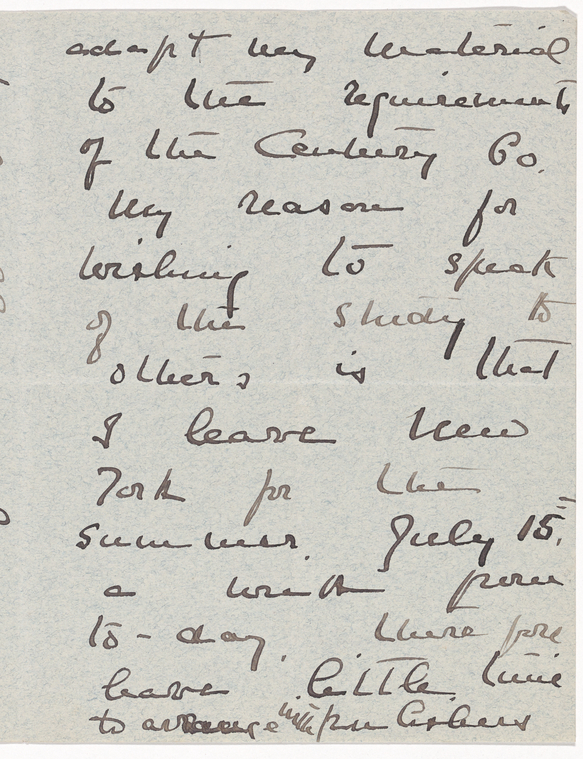 adapt my material
to the requirements
of the Century Co.
My reason for
wishing to speak
of the study to
others is that
I leave New
York for the
summer. July 15,
a week from
to-day, therefore
leave little time
to arrange with publishers